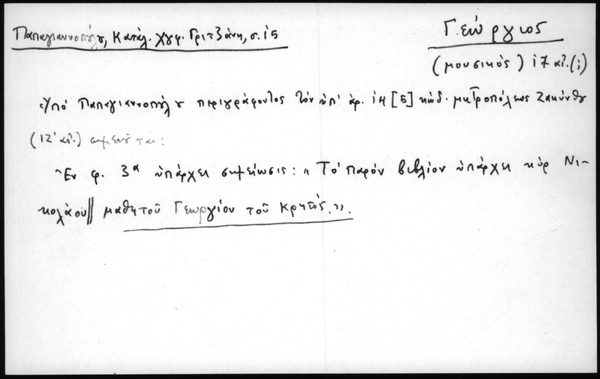 Παπαγιαννοπούλου, Κατάλ. Χγφ. Γριτζάνη, σ. 15
Γεώργιος
(μουσικός) 17 αἰ. (;)
Ὑπὸ Παπαγιαννοπούλου περιγράφοντος τὸν ὑπ' ἀρ. 14 [5] κώδ. μητροπόλεως Ζακύνθου
(12' αἰ.) σημειοῦται:
Ἐν φ. 3α ὑπάρχει σημείωσις: "Τὸ παρὸν βιβλίον ὑπάρχει κὺρ Νι-
κολάου || μαθητοῦ Γεωργίου τοῦ Κρητός.".